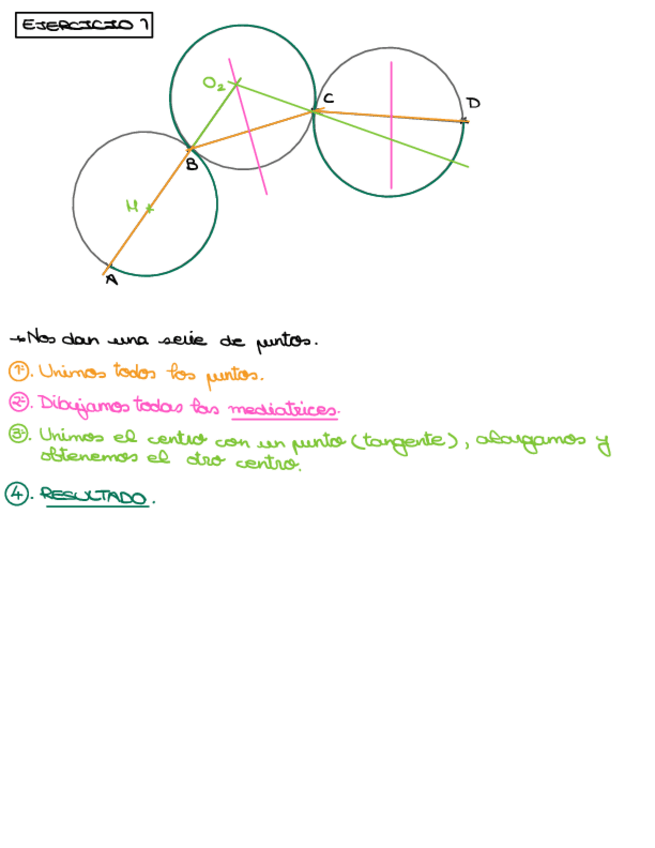 EJERCICIO 1
O2
C
D
B
M
A
→ Nos dan una serie de puntos.
1º. Unimos todos los puntos.
2º. Dibujamos todas las mediatrices.
3º. Unimos el centro con un punto (tangente), alargamos y
obtenemos el otro centro.
4. RESULTADO.